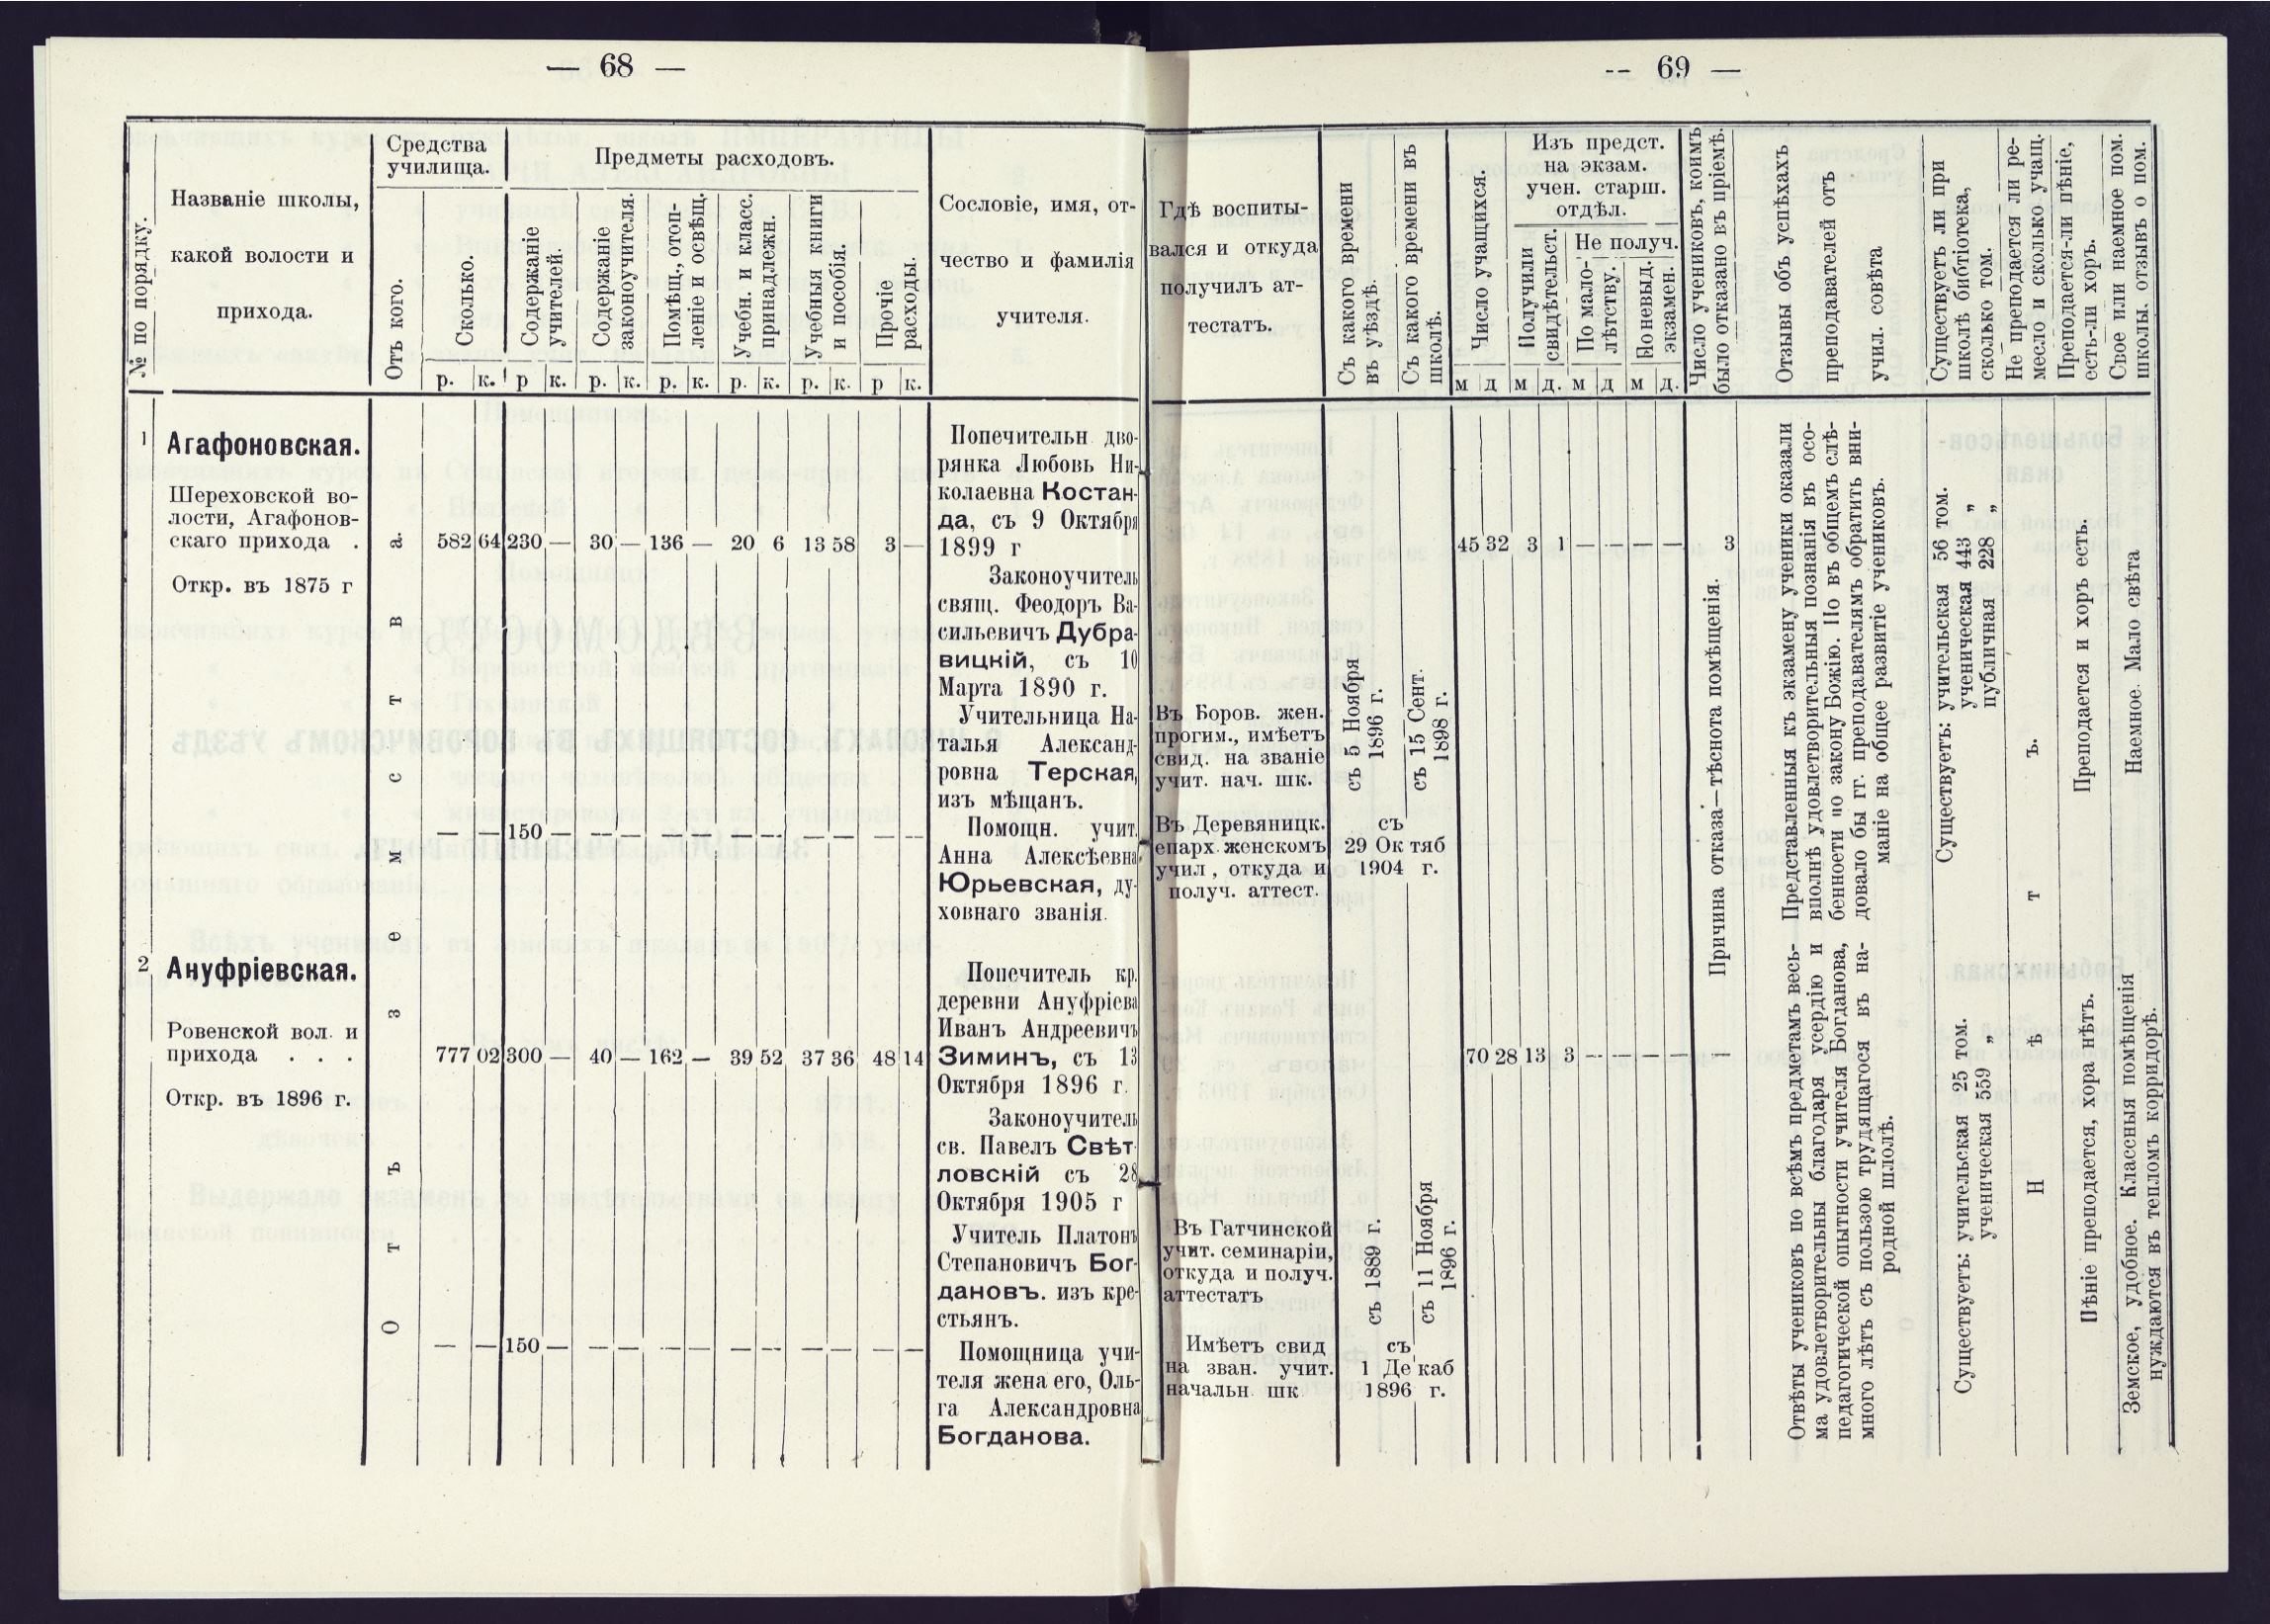 — 68 —
№ по порядку.
Названіе школы,
какой волости и
прихода.
Средства
училища.
Отъ кого.
Сколько.
р. к.
Предметы расходовъ.
Содержаніе
учителей.
р к.
Содержаніе
законоучителя.
р. к.
Помѣщ., отоп-
леніе и освѣщ.
р. к.
Учебн. и класс.
принадлежн.
р. к.
Учебныя книги
и пособія.
р. к.
Прочіе
расходы.
р к.
Сословіе, имя, от-
чество и фамилія
учителя.
1
Агафоновская.
Шереховской во-
лости, Агафонов-
скаго прихода .
Откр. въ 1875 г
Отъ земства.
582 64 230 — 30 — 136 — 20 6 13 58 3 —
— — 150 — — — — — — — — — — —
Попечительн дво-
рянка Любовь Ни-
колаевна Костан-
да, съ 9 Октября
1899 г
Законоучитель
свящ. Феодоръ Ва-
сильевичъ Дубра-
вицкій, съ 10
Марта 1890 г.
Учительница На-
талья Александ-
ровна Терская,
изъ мѣщанъ.
Помощн. учит.
Анна Алексѣевна
Юрьевская, ду-
ховнаго званія.
2
Ануфріевская.
Ровенской вол. и
прихода . . .
Откр. въ 1896 г.
777 02 300 — 40 — 162 — 39 52 37 36 48 14
— — 150 — — — — — — — — — — —
Попечитель кр.
деревни Ануфріева
Иванъ Андреевичъ
Зиминъ, съ 13
Октября 1896 г.
Законоучитель
св. Павелъ Свѣт-
ловскій съ 28
Октября 1905 г
Учитель Платонъ
Степановичъ Бог-
дановъ. изъ кре-
стьянъ.
Помощница учи-
теля жена его, Оль-
га Александровна
Богданова.
-- 69 —
Гдѣ воспиты-
вался и откуда
получилъ ат-
тестатъ.
Съ какого времени
въ уѣздѣ.
Съ какого времени въ
школѣ.
Число учащихся.
м д
Изъ предст.
на экзам.
учен. старш.
отдѣл.
Получили
свидѣтельст.
м д.
Не получ.
По мало-
лѣтству.
м д
По невыд.
экзамен.
м д.
Число учениковъ, коимъ
было отказано въ пріемѣ.
Отзывы объ успѣхахъ
преподавателей отъ
учил. совѣта
Существуетъ ли при
школѣ библіотека,
сколько том.
Не преподается ли ре-
месло и сколько учащ.
Преподается-ли пѣніе,
есть-ли хоръ.
Свое или наемное пом.
школы. отзывъ о пом.
Въ Боров. жен.
прогим., имѣетъ
свид. на званіе
учит. нач. шк.
съ 5 Ноября
1896 г.
съ 15 Сент.
1898 г.
Въ Деревяницк.
епарх женскомъ
учил , откуда и
получ. аттест.
съ
29 Октяб
1904 г.
45 32 3 1 — — — — 3
Причина отказа—тѣснота помѣщенія.
Представленныя къ экзамену ученики оказали
вполнѣ удовлетворительныя познанія въ осо-
бенности по закону Божію. Но въ общемъ слѣ-
довало бы гг. преподавателямъ обратить вни-
маніе на общее развитіе учениковъ.
Существуетъ: учительская 56 том.
ученическая 443 „
публичная 228 „
Нѣтъ.
Преподается и хоръ есть.
Наемное. Мало свѣта
Въ Гатчинской
учит. семинаріи,
откуда и получ.
аттестатъ
съ 1889 г.
съ 11 Ноября
1896 г.
Имѣетъ свид
на зван. учит.
начальн. шк
съ
1 Декаб
1896 г.
70 28 13 3 — — — — —
Отвѣты учениковъ по всѣмъ предметамъ весь-
ма удовлетворительны благодаря усердію и
педагогической опытности учителя Богданова,
много лѣтъ съ пользою трудящагося въ на-
родной шполѣ.
Существуетъ: учительская 25 том.
ученическая 559 „
Пѣніе преподается, хора нѣтъ.
Земское, удобное. Классныя помѣщенія
нуждаются въ тепломъ корридорѣ.